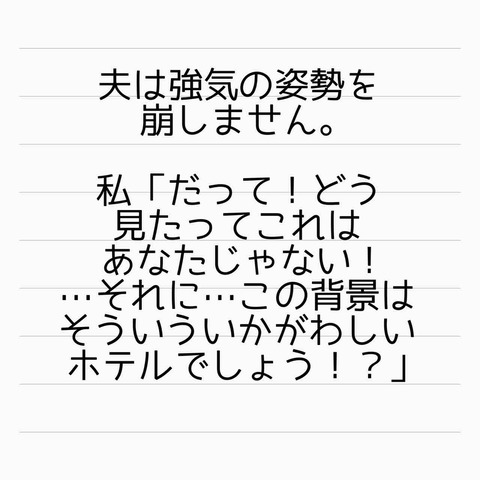 夫は強気の姿勢を
崩しません。
私「だって！どう
見たってこれは
あなたじゃない！
…それに…この背景は
そういういかがわしい
ホテルでしょう！？」